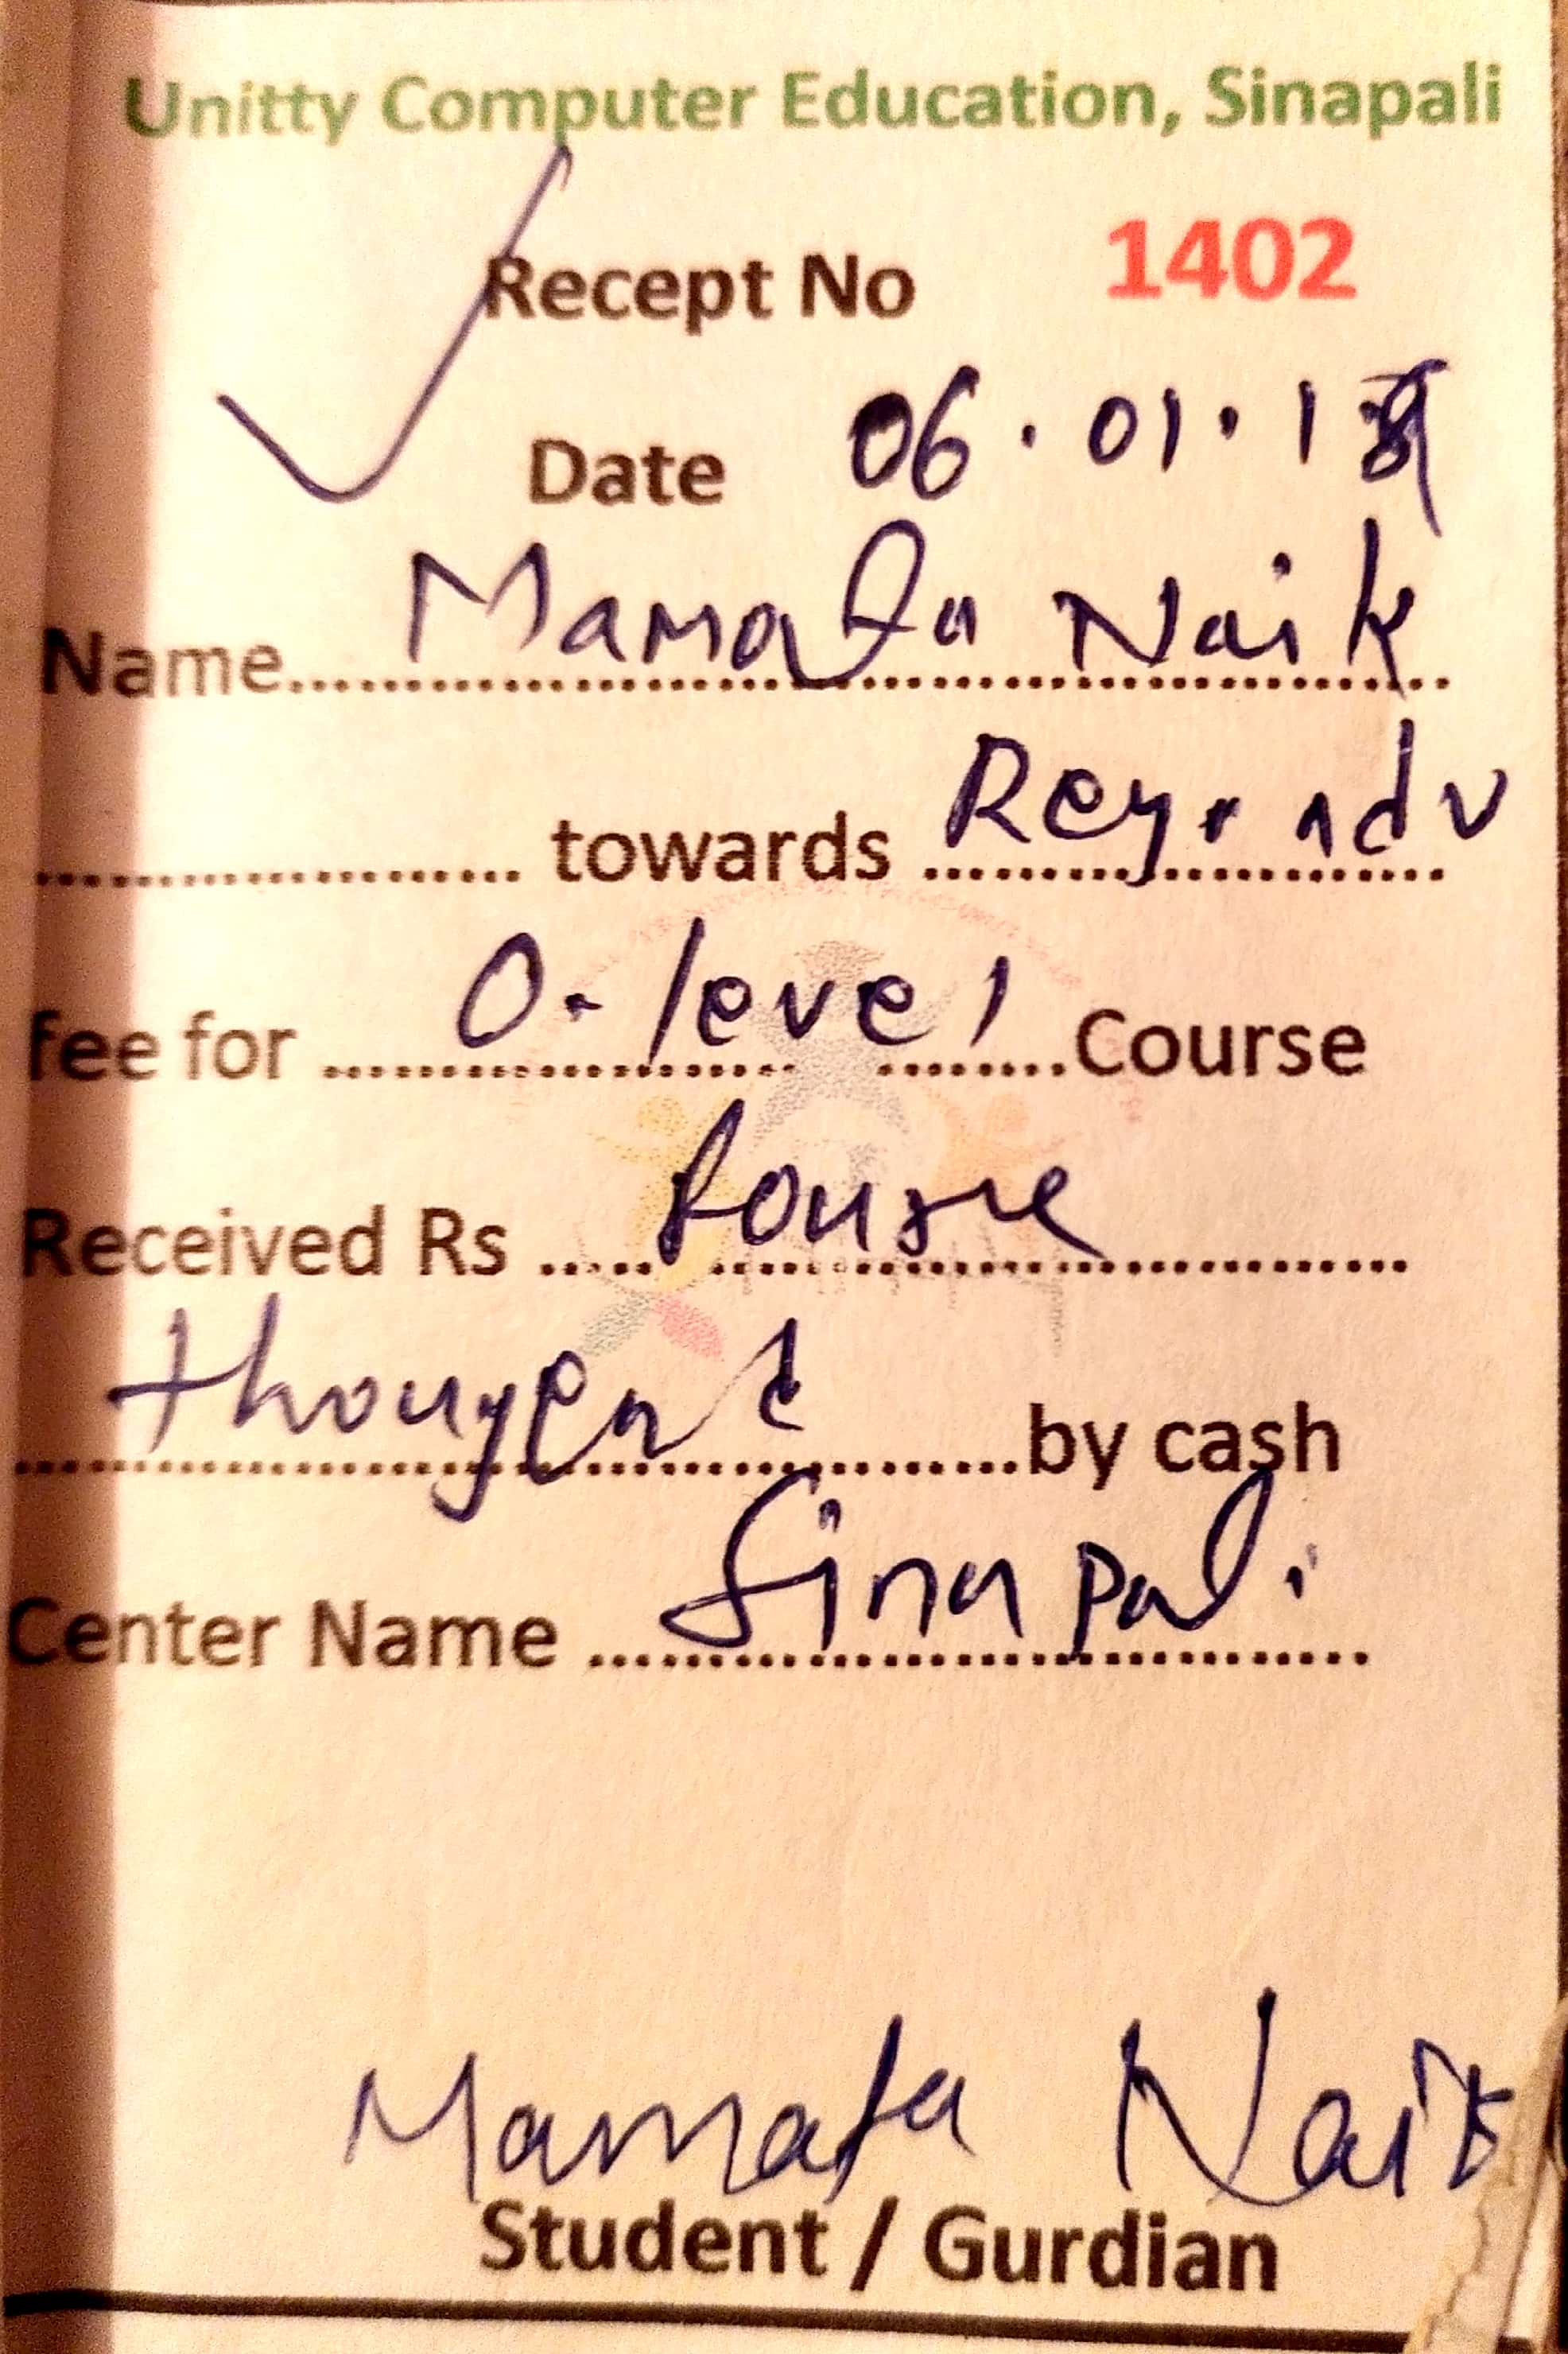 Unitty Computer Education, Sinapali
Recept No 1402
Date 06.01.19
Name Mamata Naik
towards
fee for O-level Course
Received Rs
by cash
Center Name Sinapali
Mamata Naik
Student / Gurdian